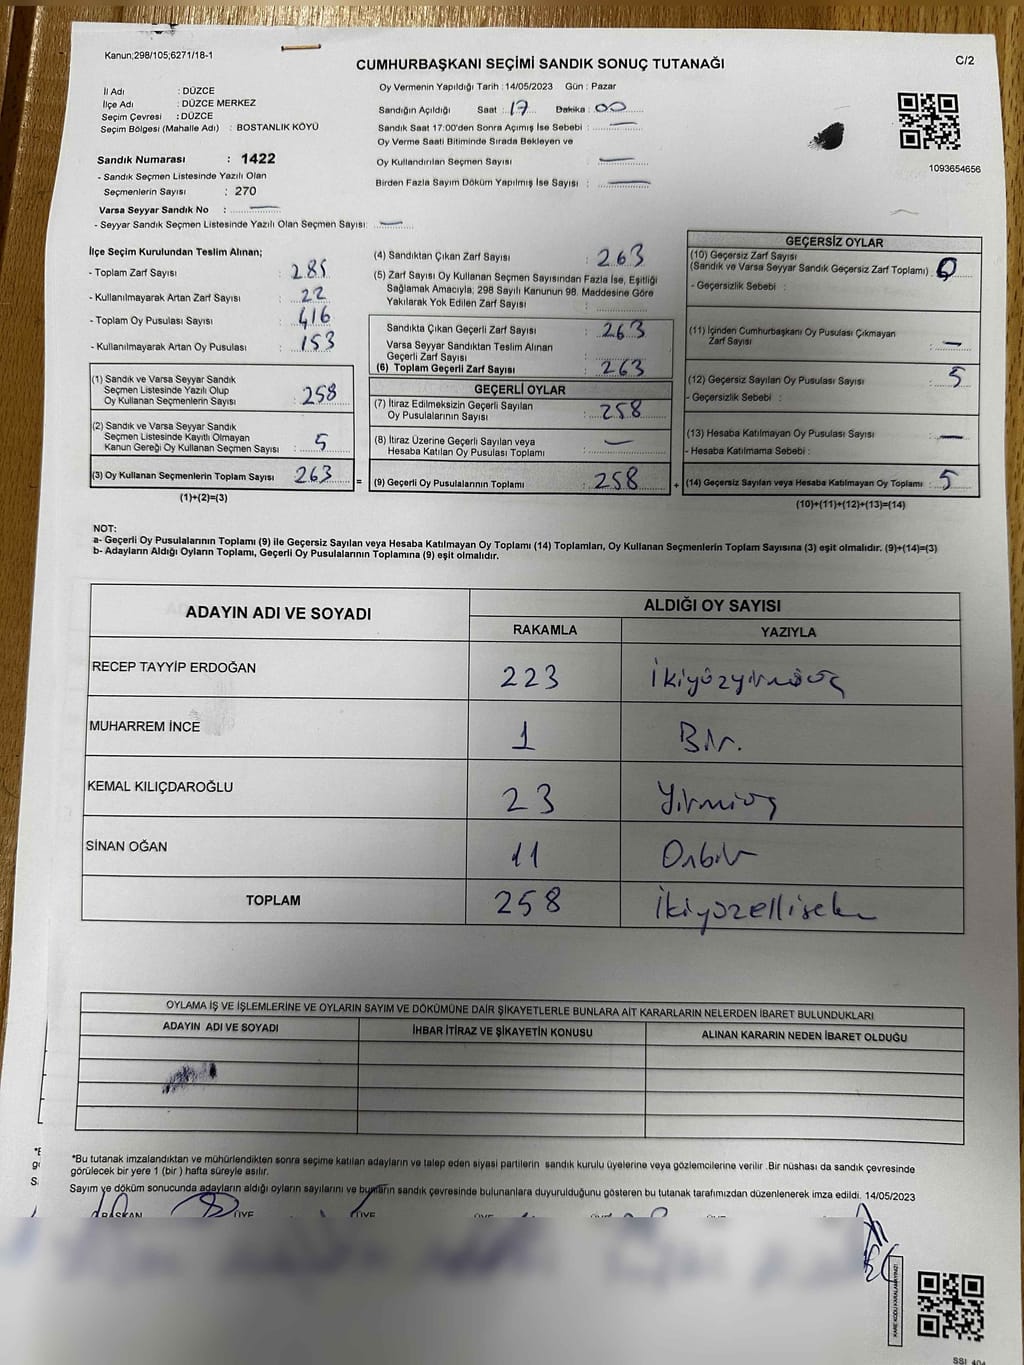 Kanun;298/105;6271/18-1
C/2
CUMHURBAŞKANI SEÇİMİ SANDIK SONUÇ TUTANAĞI
İl Adı : DÜZCE
İlçe Adı : DÜZCE MERKEZ
Seçim Çevresi : DÜZCE
Seçim Bölgesi (Mahalle Adı) : BOSTANLIK KÖYÜ
Sandık Numarası : 1422
- Sandık Seçmen Listesinde Yazılı Olan
Seçmenlerin Sayısı : 270
Varsa Seyyar Sandık No : —
- Seyyar Sandık Seçmen Listesinde Yazılı Olan Seçmen Sayısı: —
Oy Vermenin Yapıldığı Tarih : 14/05/2023 Gün : Pazar
Sandığın Açıldığı Saat : 17 Dakika : 00
Sandık Saat 17:00'den Sonra Açımış İse Sebebi : —
Oy Verme Saati Bitiminde Sırada Bekleyen ve
Oy Kullandırılan Seçmen Sayısı : —
Birden Fazla Sayım Döküm Yapılmış İse Sayısı : —
1093654656
İlçe Seçim Kurulundan Teslim Alınan;
- Toplam Zarf Sayısı : 285
- Kullanılmayarak Artan Zarf Sayısı : 22
- Toplam Oy Pusulası Sayısı : 416
- Kullanılmayarak Artan Oy Pusulası : 153
(1) Sandık ve Varsa Seyyar Sandık
Seçmen Listesinde Yazılı Olup
Oy Kullanan Seçmenlerin Sayısı : 258
(2) Sandık ve Varsa Seyyar Sandık
Seçmen Listesinde Kayıtlı Olmayan
Kanun Gereği Oy Kullanan Seçmen Sayısı : 5
(3) Oy Kullanan Seçmenlerin Toplam Sayısı 263
(1)+(2)=(3)
=
(4) Sandıktan Çıkan Zarf Sayısı : 263
(5) Zarf Sayısı Oy Kullanan Seçmen Sayısından Fazla İse, Eşitliği
Sağlamak Amacıyla; 298 Sayılı Kanunun 98. Maddesine Göre
Yakılarak Yok Edilen Zarf Sayısı :
Sandıkta Çıkan Geçerli Zarf Sayısı : 263
Varsa Seyyar Sandıktan Teslim Alınan
Geçerli Zarf Sayısı :
(6) Toplam Geçerli Zarf Sayısı : 263
GEÇERLİ OYLAR
(7) İtiraz Edilmeksizin Geçerli Sayılan
Oy Pusulalarının Sayısı : 258
(8) İtiraz Üzerine Geçerli Sayılan veya
Hesaba Katılan Oy Pusulası Toplamı : —
(9) Geçerli Oy Pusulalarının Toplamı : 258
+
GEÇERSİZ OYLAR
(10) Geçersiz Zarf Sayısı
(Sandık ve Varsa Seyyar Sandık Geçersiz Zarf Toplamı) : 0
- Geçersizlik Sebebi :
(11) İçinden Cumhurbaşkanı Oy Pusulası Çıkmayan
Zarf Sayısı : —
(12) Geçersiz Sayılan Oy Pusulası Sayısı : 5
- Geçersizlik Sebebi :
(13) Hesaba Katılmayan Oy Pusulası Sayısı : —
- Hesaba Katılmama Sebebi :
(14) Geçersiz Sayılan veya Hesaba Katılmayan Oy Toplamı : 5
(10)+(11)+(12)+(13)=(14)
NOT:
a- Geçerli Oy Pusulalarının Toplamı (9) ile Geçersiz Sayılan veya Hesaba Katılmayan Oy Toplamı (14) Toplamları, Oy Kullanan Seçmenlerin Toplam Sayısına (3) eşit olmalıdır. (9)+(14)=(3)
b- Adayların Aldığı Oyların Toplamı, Geçerli Oy Pusulalarının Toplamına (9) eşit olmalıdır.
ADAYIN ADI VE SOYADI
ALDIĞI OY SAYISI
RAKAMLA YAZIYLA
RECEP TAYYİP ERDOĞAN 223 İkiyüzyirmiüç
MUHARREM İNCE 1 Bir.
KEMAL KILIÇDAROĞLU 23 Yirmiüç
SİNAN OĞAN 11 Onbir
TOPLAM 258 İkiyüzellisekiz
OYLAMA İŞ VE İŞLEMLERİNE VE OYLARIN SAYIM VE DÖKÜMÜNE DAİR ŞİKAYETLERLE BUNLARA AİT KARARLARIN NELERDEN İBARET BULUNDUKLARI
ADAYIN ADI VE SOYADI İHBAR İTİRAZ VE ŞİKAYETİN KONUSU ALINAN KARARIN NEDEN İBARET OLDUĞU
*Bu tutanak imzalandıktan ve mühürlendikten sonra seçime katılan adayların ve talep eden siyasi partilerin sandık kurulu üyelerine veya gözlemcilerine verilir .Bir nüshası da sandık çevresinde
görülecek bir yere 1 (bir ) hafta süreyle asılır.
Sayım ve döküm sonucunda adayların aldığı oyların sayılarını ve bunların sandık çevresinde bulunanlara duyurulduğunu gösteren bu tutanak tarafımızdan düzenlenerek imza edildi. 14/05/2023
BAŞKAN ÜYE ÜYE ÜYE ÜYE ÜYE
KARE KODU KARALAMAYINIZ!